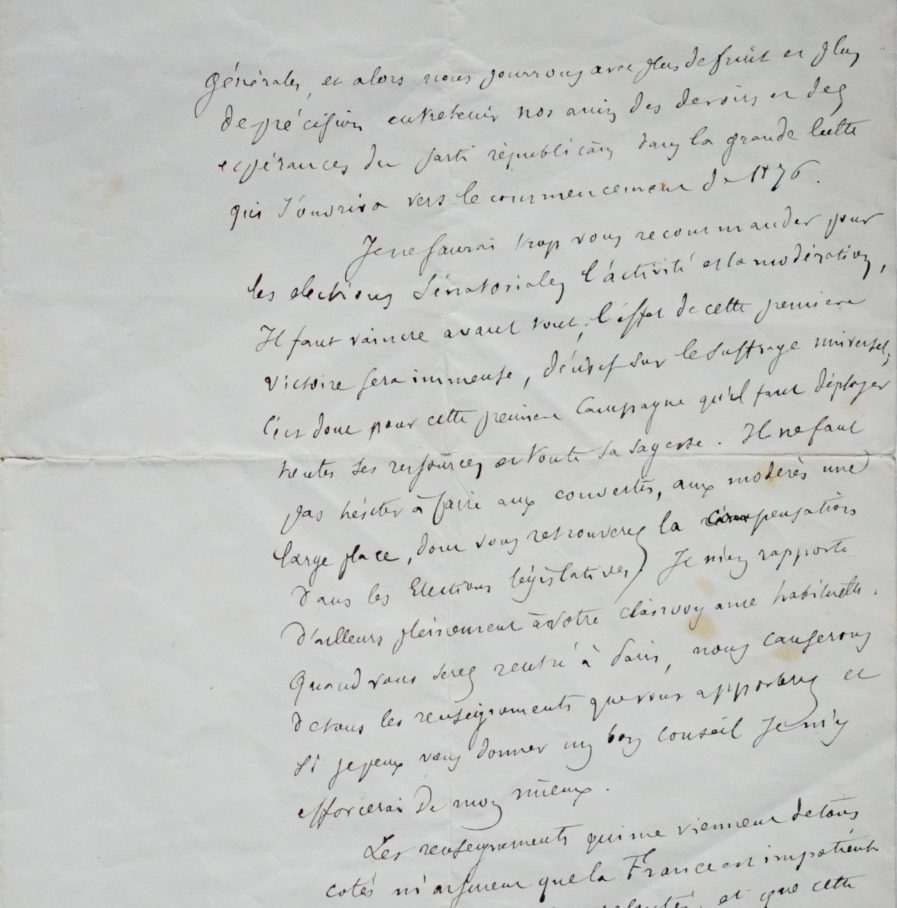 générales, et alors nous pourrons avec plus de fruit et plus
de précision entretenir nos amis des devoirs et des
espérances du parti républicain dans la grande lutte
qui s'ouvrira vers le commencement de 1876.
Je ne saurai trop vous recommander pour
les elections Sénatoriales l'activité et la modération,
Il faut vaincre avant tout; l'effet de cette première
victoire sera immense, décisif sur le suffrage universel,
C'est donc pour cette première Campagne qu'il faut déployer
toutes ses ressources et toute sa sagesse. Il ne faut
pas hésiter à faire aux convertis, aux modérés une
large place, dont vous retrouverez la compensation
dans les Elections législatives) Je m'en rapporte
d'ailleurs pleinement à votre clairvoyance habituelle.
Quand vous serez rentré à Paris, nous causerons
de tous les renseignements que vous apporterez et
si je peux vous donner un bon conseil Je m'y
efforcerai de mon mieux.
Les renseignements qui me viennent de tous
cotés m'assurent que la France est impatiente
et que cette